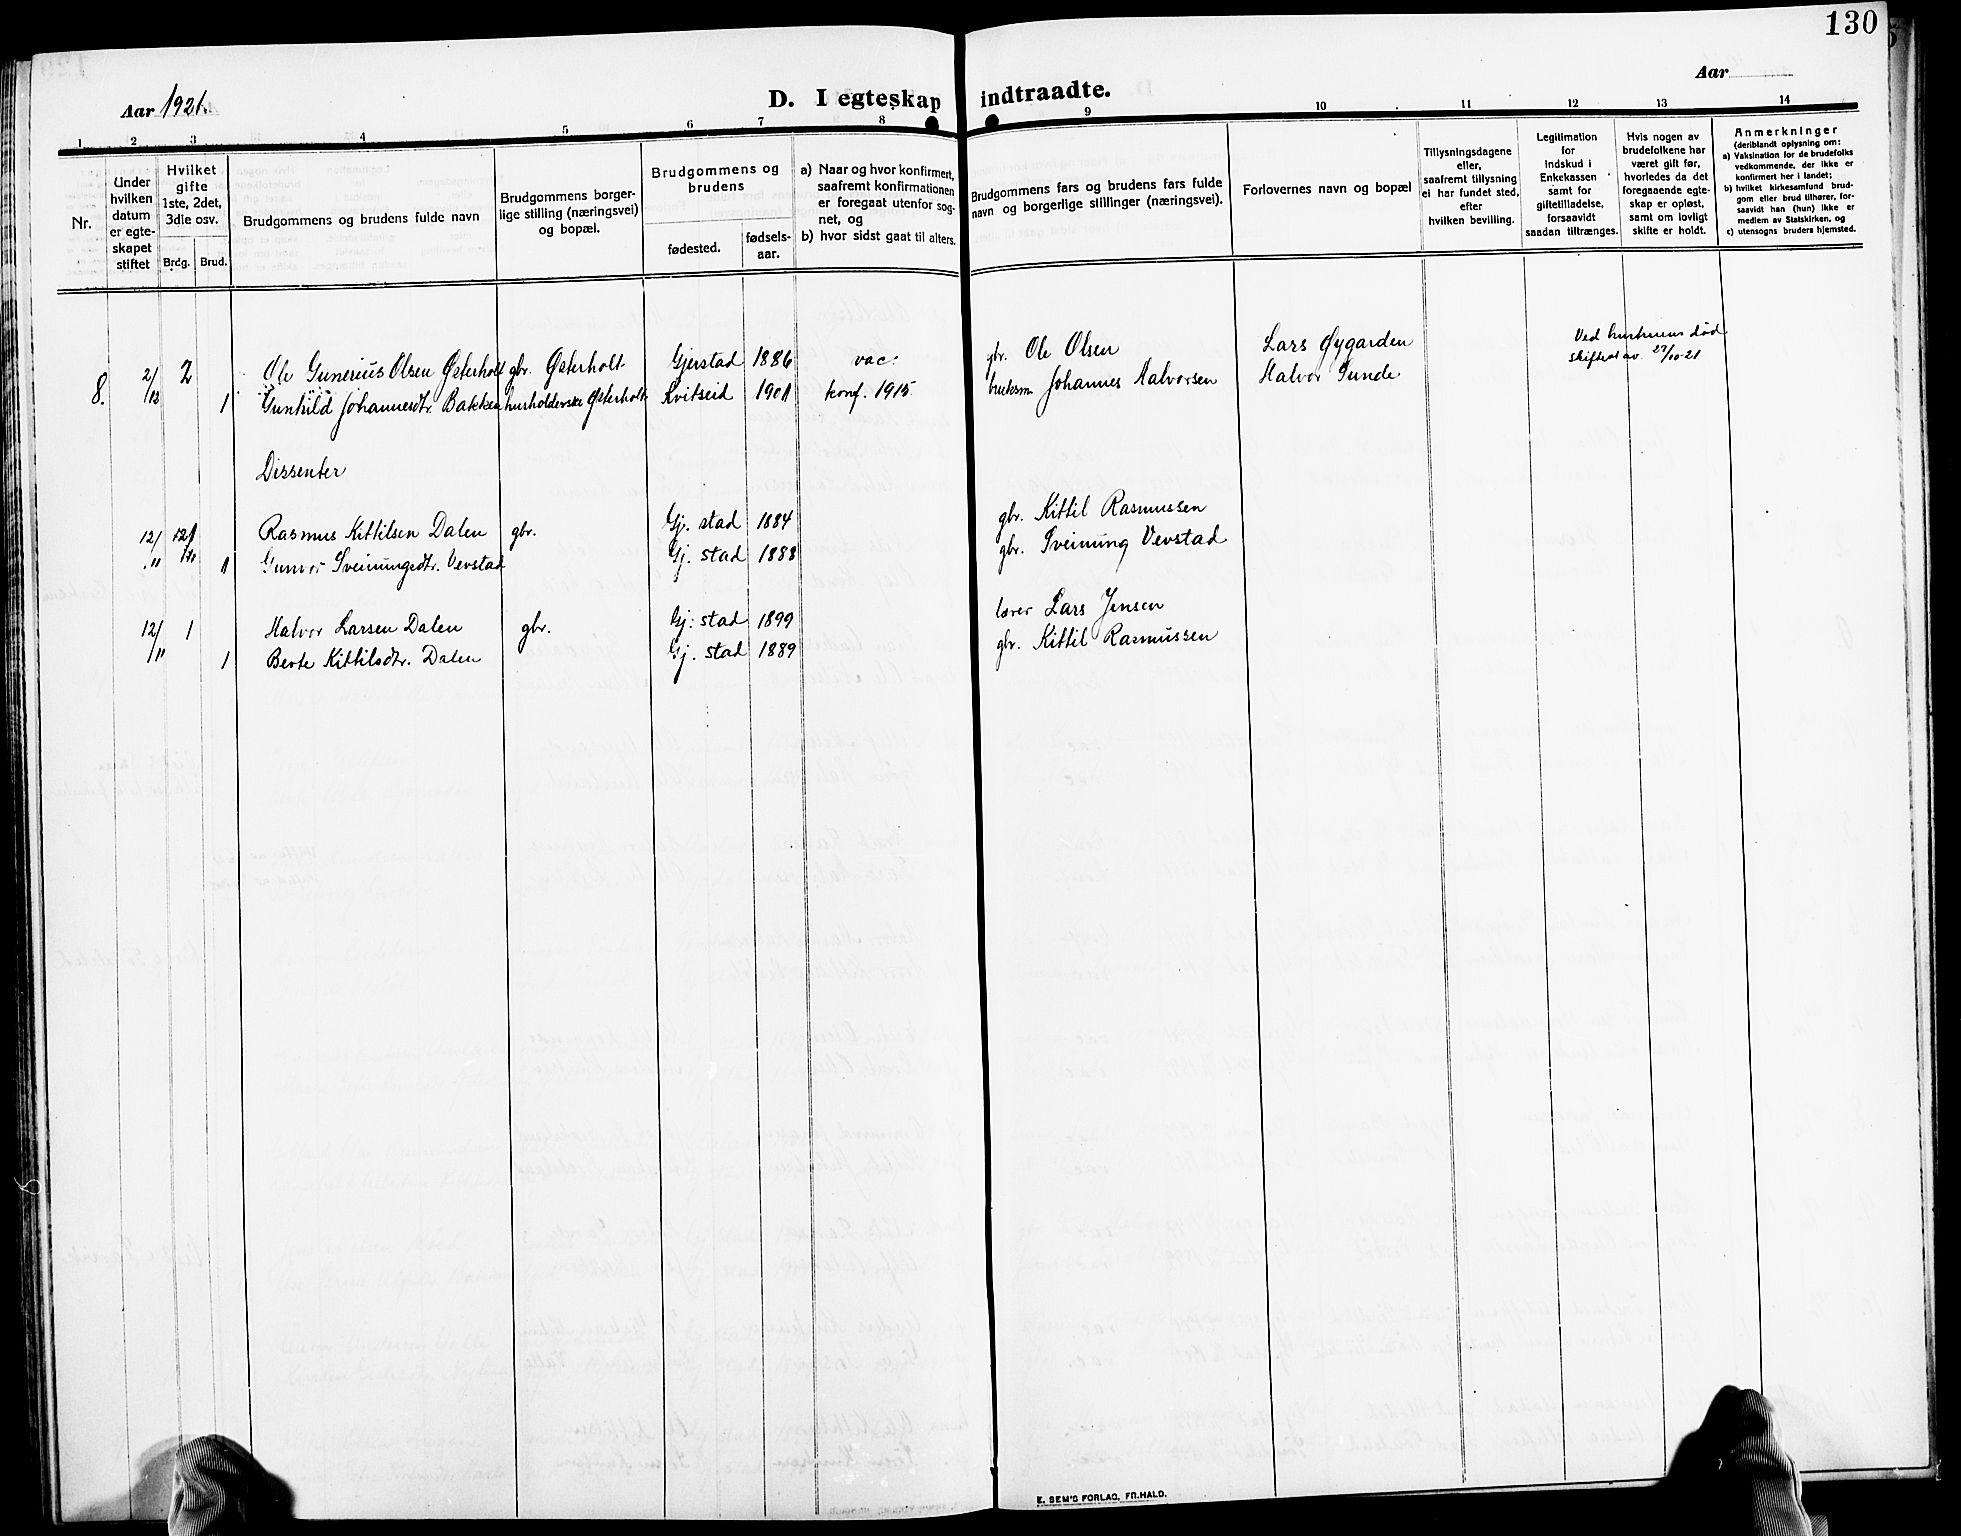 130
Aar 1921.
D. I egteskap indtraadte.
Aar
1 2 3 4 5 6 7 8 9 10 11 12 13 14
Nr.
Under hvilken datum er egteskapet stiftet
Hvilket gifte 1ste, 2det, 3dle osv.
Brdg. Brud.
Brudgommens og brudens fulde navn
Brudgommens borgerlige stilling (næringsvei) og bopæl.
Brudgommens og brudens
fødested.
fødselsaar.
a) Naar og hvor konfirmert, saafremt konfirmationen er foregaat utenfor sognet, og
b) hvor sidst gaat til alters.
Brudgommens fars og brudens fars fulde navn og borgerlige stillinger (næringsvei).
Forlovernes navn og bopæl
Tillysningsdagene eller, saafremt tillysning ei har fundet sted, efter hvilken bevilling.
Legitimation for indskud i Enkekassen samt for giftetilladelse, forsaavidt saadan tiltrænges.
Hvis nogen av brudefolkene har været gift før, hvorledes da det foregaaende egteskap er opløst, samt om lovligt skifte er holdt.
Anmerkninger
(deriblandt oplysning om:
a) Vaksination for de brudefolks vedkommende, der ikke er konfirmert her i landet;
b) hvilket kirkesamfund brudgom eller brud tilhører, forsaavidt han (hun) ikke er medlem av Statskirken, og
c) utensogns bruders hjemsted.
8. 2/12 2 Ole Gunerius Olsen Østerholt gbr. Østerholt Gjerstad 1886 vac. gbr. Ole Olsen Lars Øygarden Ved hustruens død skifteat av 27/10-21
1 Gunhild Johannesdtr. Bakken husholderske Østerholt Kvitseid 1901 konf. 1915 bruksm. Johannes Halvorsen Halvor Sunde
Dissenter
12/11 Rasmus Kittilsen Dalen gbr. Gj. stad 1884 gbr. Kittil Rasmussen
1 Gunvor Sveinungsdtr. Vevstad Gj. stad 1888 gbr. Sveinung Vevstad
12/11 1 Halvor Larsen Dalen gbr. Gj. stad 1899 lærer Lars Jensen
1 Berte Kittilsdtr. Dalen Gj. stad 1889 gbr. Kittil Rasmussen
E. SEM'S FORLAG, FR.HALD.